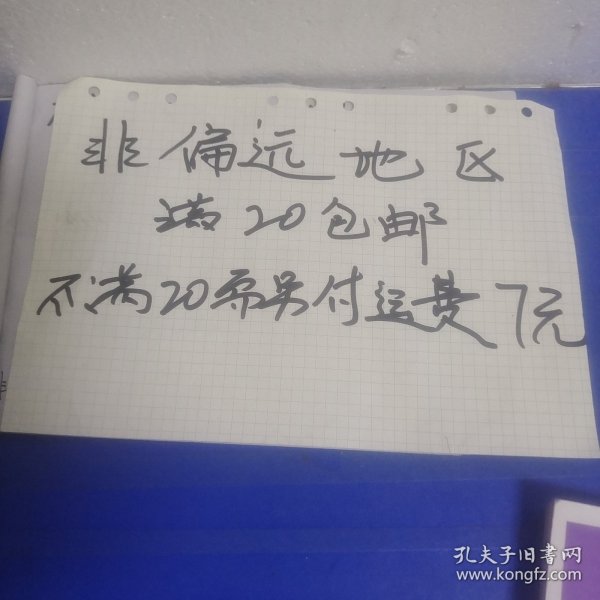 非偏远地区
满20包邮
不满20需另付运费7元
孔夫子旧书网
www.kongfz.com